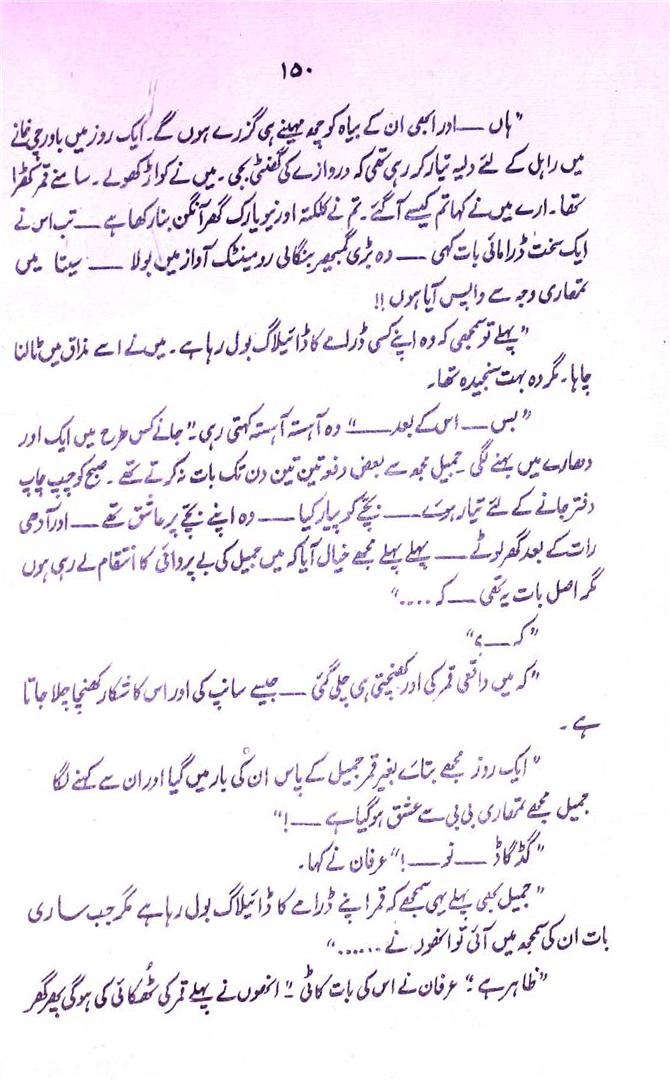 ۱۵۰
"ہاں —— اور ابھی ان کے بیاہ کو چھ مہینے ہی گزرے ہوں گے۔ ایک روز میں باورچی خانے
میں راہل کے لئے دلیہ تیار کر رہی تھی کہ دروازے کی گھنٹی بجی۔ میں نے کواڑ کھولے۔ سامنے قمر کھڑا
تھا۔ ارے میں نے کہا تم کیسے آ گئے۔ تم نے کلکتہ اور نیویارک گھر آنگن بنا رکھا ہے —— تب اس نے
ایک سخت ڈرامائی بات کہی —— وہ بڑی گمبھیر بنگالی رومینٹک آواز میں بولا —— سیتا میں
تمھاری وجہ سے واپس آیا ہوں !!
"پہلے تو سمجھی کہ وہ اپنے کسی ڈرامے کا ڈائیلاگ بول رہا ہے۔ میں نے اسے مذاق میں ٹالنا
چاہا۔ مگر وہ بہت سنجیدہ تھا۔
"بس —— اس کے بعد ——" وہ آہستہ آہستہ کہتی رہی۔ "جانے کس طرح میں ایک اور
دھارے میں بہنے لگی۔ جمیل مجھ سے بعض دفعہ تین تین دن تک بات نہ کرتے تھے۔ صبح کو چپ چاپ
دفتر جانے کے لئے تیار ہوئے —— بچّے کو پیار کیا —— وہ اپنے بچّے پر عاشق تھے —— اور آدھی
رات کے بعد گھر لوٹے —— پہلے پہلے مجھے خیال آیا کہ میں جمیل کی بے پروائی کا انتقام لے رہی ہوں
مگر اصل بات یہ تھی —— کہ ...."
"کہ —— ؟"
"کہ میں واقعی قمر کی اور کھنچتی ہی چلی گئی —— جیسے سانپ کی اور اس کا شکار کھنچا چلا جاتا
ہے۔
"ایک روز مجھے بتائے بغیر قمر جمیل کے پاس ان کی بار میں گیا اور ان سے کہنے لگا
جمیل مجھے تمھاری بی بی سے عشق ہو گیا ہے —— !"
"گڈ گاڈ —— نو —— !" عرفان نے کہا۔
"جمیل بھی پہلے یہی سمجھے کہ قمر اپنے ڈرامے کا ڈائیلاگ بول رہا ہے مگر جب ساری
بات ان کی سمجھ میں آئی تو انھوں نے ......"
"ظاہر ہے۔" عرفان نے اس کی بات کاٹی۔ "انھوں نے پہلے قمر کی ٹُھکائی کی ہوگی پھر گھر